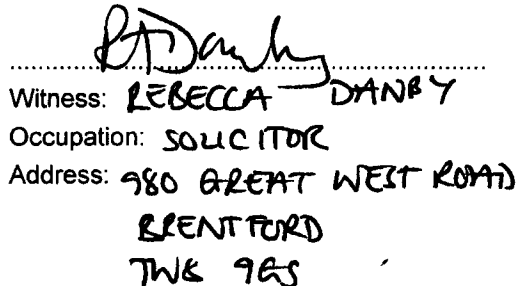 RADanby
Witness: REBECCA DANBY
Occupation: SOLICITOR
Address: 980 GREAT WEST ROAD
BRENTFORD
TW8 9GS